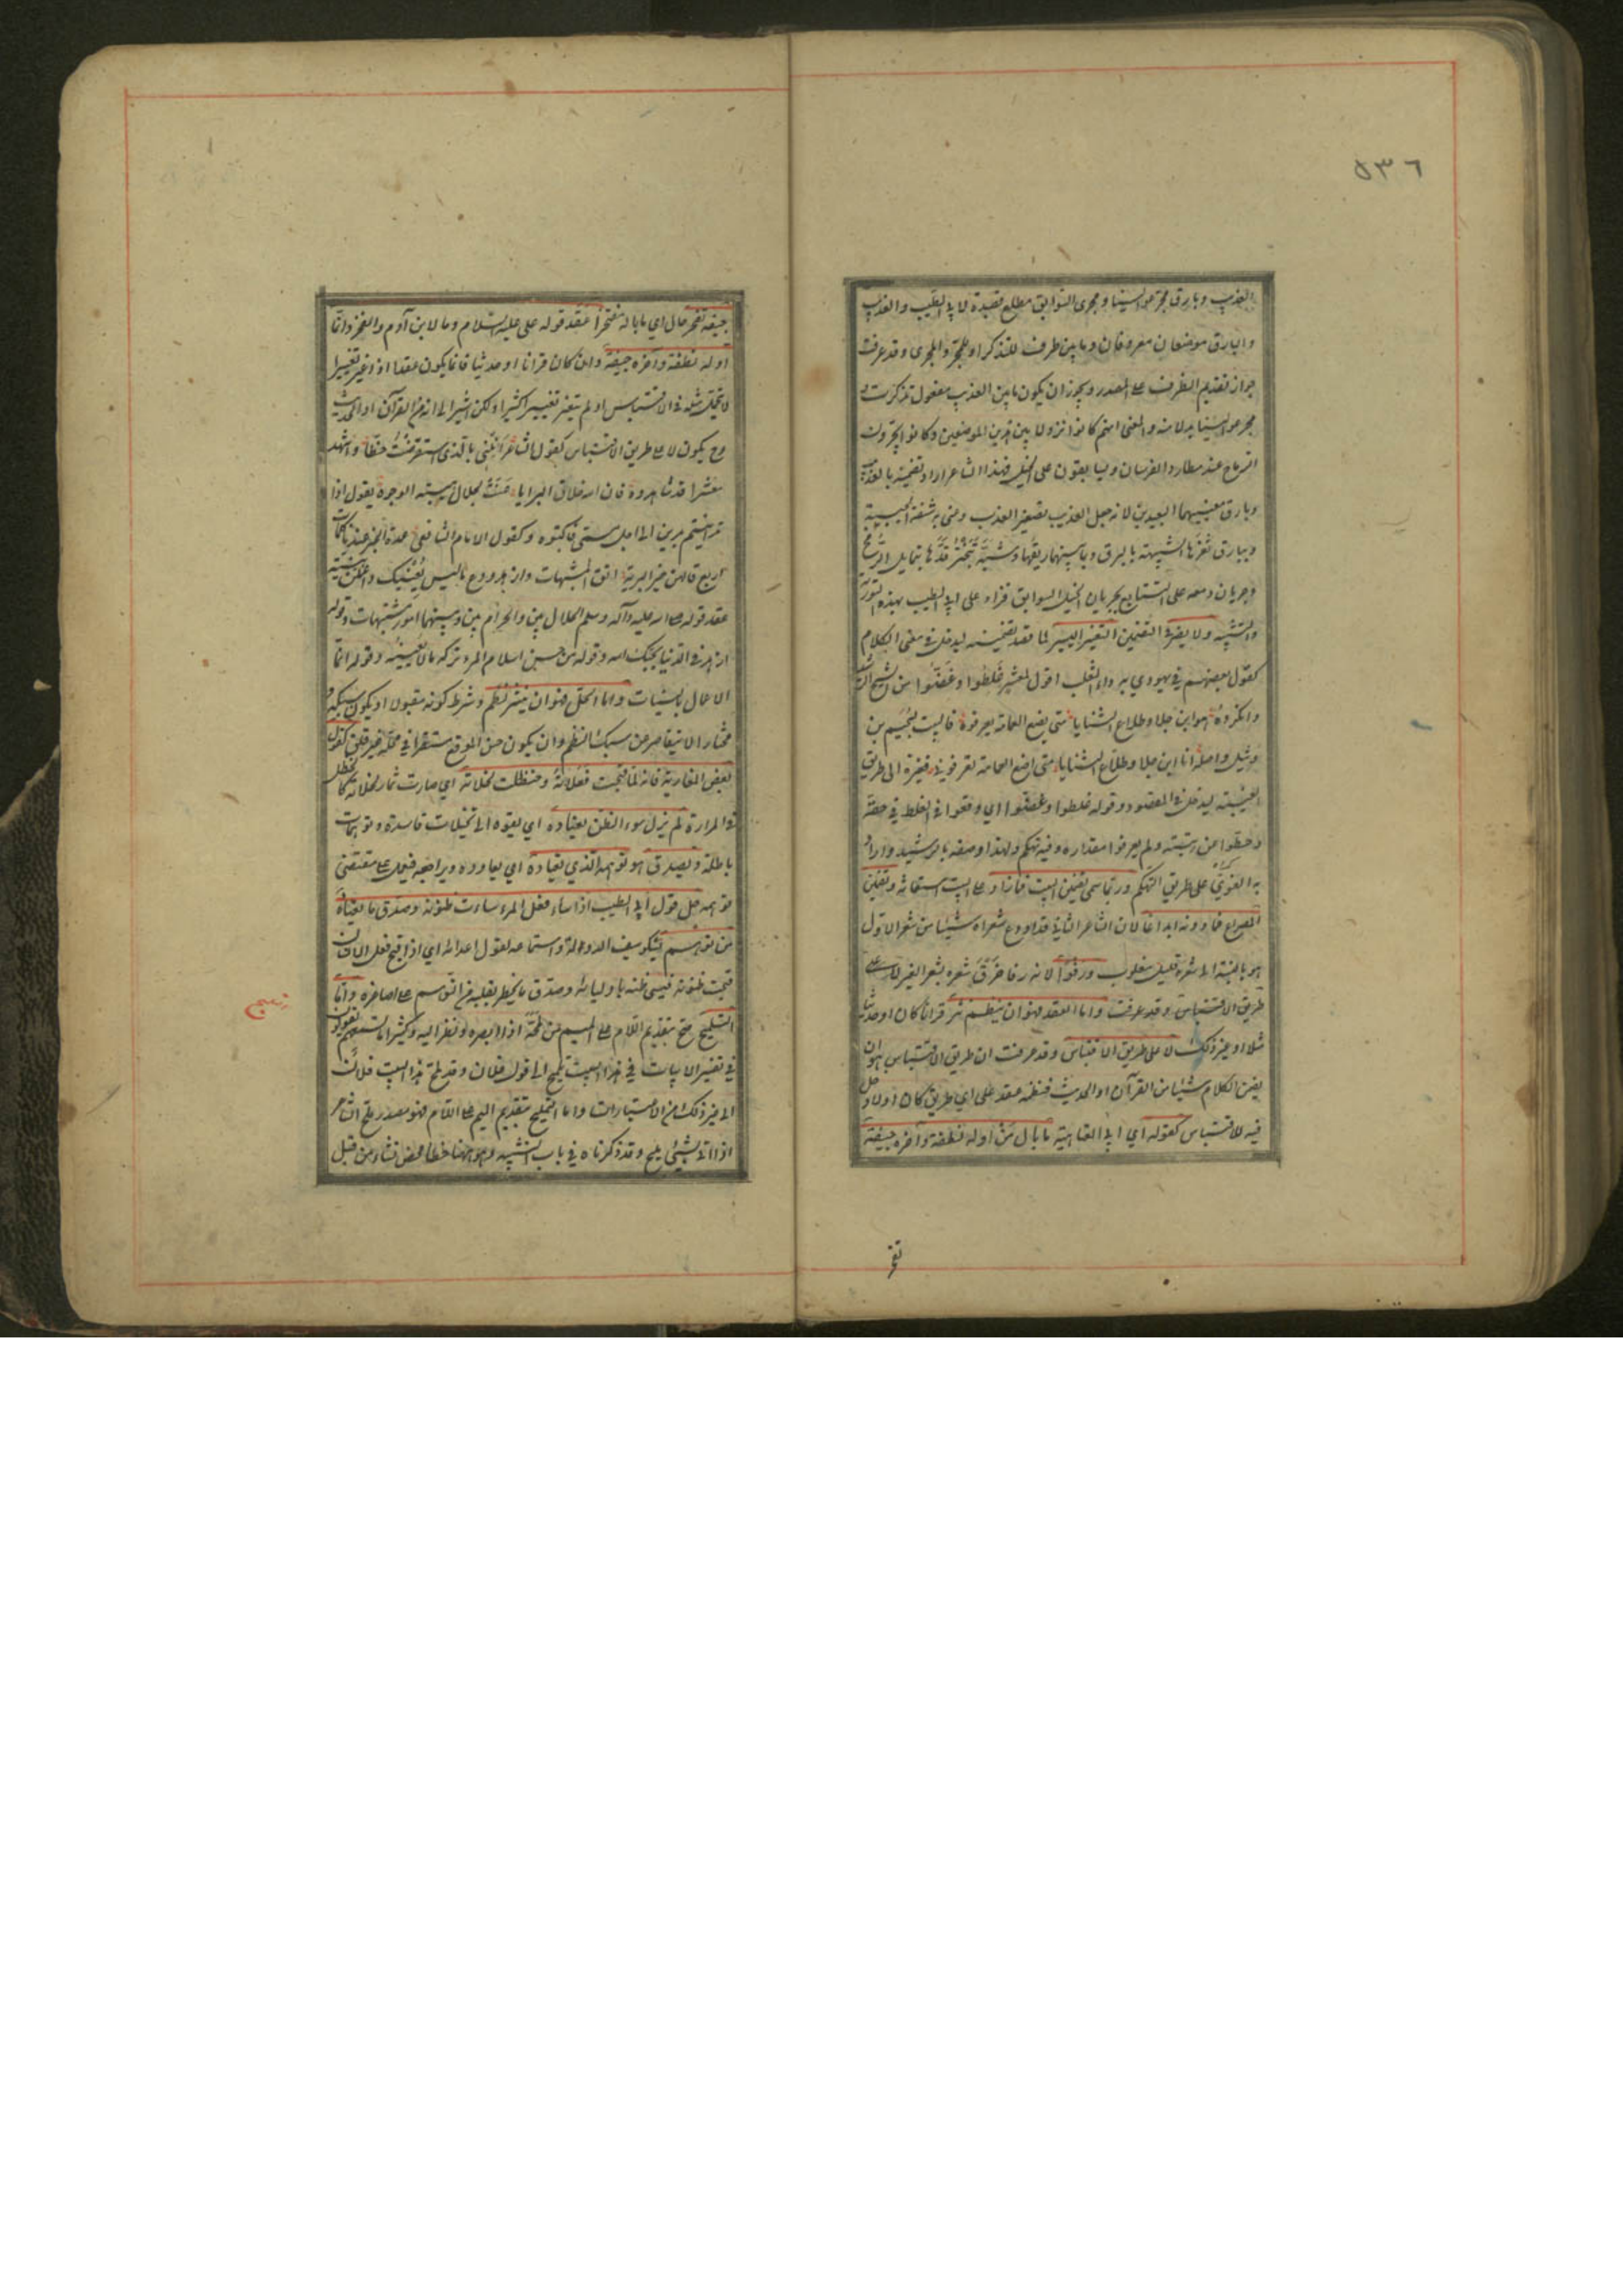 ٥٣٦
العذيب وبارق مجر عوالينا ومجرى السوابق مطلع قصيدة لابي الطيب والعذيب
والبارق موضعان معروفان وما بين ظرف للتذكر او للمجر والمجرى وقد عرفت
جواز تقديم الظرف على المصدر ويجوز ان يكون ما بين العذيب مفعول تذكرت و
مجر عوالينا بدلا منه والمعنى انهم كانوا نزولا بين هذين الموضعين وكانوا يجرون
الرماح عند مطاردة الفرسان ويسابقون على الخيل فهذا الشاعر اراد بتضمينه بالعذيب
وبارق معنييهما البعيدين لانه جعل العذيب تصغير العذب وعنى به شفة الحبيبة
وببارق ثغرها الشبيهة بالبرق وبما بينهما ريقها وشبه تبختر قدها بتمايل الرمح
وجريان دمعه على التتابع بجريان الخيل السوابق فزاد على ابي الطيب بهذه التورية
والتشبيه ولا يضر في التضمين التغيير اليسير لما قصد تضمينه ليدخل في معنى الكلام
كقول بعضهم في يهودي به داء الثعلب اقول لمعشر غلطوا وغضوا من الشيخ الرشيد
وانكروه هو ابن جلا وطلاع الثنايا متى يضع العمامة يعرفوه فالبيت لسحيم بن
وثيل واصله انا ابن جلا وطلاع الثنايا متى اضع العمامة تعرفوني فغيره الى طريق
الغيبة ليدخل في المقصود وقوله غلطوا وغضوا اي وقعوا في الغلط في حقه
وحطوا من رتبته ولم يعرفوا مقداره وفيه تهكم ولهذا وصفه بالرشيد واراد
به الغوي على طريق التهكم وربما سمى تضمين البيت فما زاد على البيت استعانة وتضمين
المصراع فما دونه ايداعا لان الشاعر الثاني قد اودع شعره شيئا من شعر الاول
هو بالنسبة الى شعره قليل مغلوب ورفوا لانه رفا خرق شعره بشعر الغير لا على
طريق الاقتباس وقد عرفت واما العقد فهو ان ينظم نثر قرانا كان او حديثا
مثلا او غير ذلك لا على طريق الاقتباس وقد عرفت ان طريق الاقتباس هو ان
يضمن الكلام شيئا من القرآن او الحديث فنظمه عقد على اي طريق كان اولا دخل
فيه للاقتباس كقوله اي ابي العتاهية ما بال من اوله نطفة وآخره جيفة
تفخر
جيفة تفخر حال اي ما باله مفتخرا عقد قوله علي عليه السلام وما لابن آدم والفخر وانما
اوله نطفة وآخره جيفة وان كان قرانا او حديثا فانما يكون عقدا اذا غير تغييرا
لا يتحمل مثله في الاقتباس او لم يتغير تغييرا كثيرا ولكن اشير الى انه من القرآن او الحديث
وح يكون لا على طريق الاقتباس كقول الشاعر انلني بالذي استقرضت خطا واشهد
معشرا قد شاهدوه فان الله خلاق البرايا عنت لجلال هيبته الوجوه يقول اذا
تداينتم بدين الى اجل مسمى فاكتبوه وكقول الامام الشافعي عمدة الخير عندنا كلمات
اربع قالهن خير البرية اتق المشبهات وازهد ودع ما ليس يعنيك واعملن بنية
عقد قوله صلى الله عليه وآله وسلم الحلال بين والحرام بين وبينهما امور مشتبهات وقوله
ازهد في الدنيا يحبك الله وقوله من حسن اسلام المرء تركه ما لا يعنيه وقوله انما
الاعمال بالنيات واما الحل فهو ان ينثر نظم وشرط كونه مقبولا ان يكون سبكه
مختارا لا يتقاصر عن سبك النظم وان يكون حسن الموقع مستقرا في محله غير قلق كقول
بعض المغاربة فانه لما قبحت فعلاته وحنظلت نخلاته اي صارت ثمار نخلاته كالحنظل
في المرارة لم يزل سوء الظن يقتاده اي يقوده الى تخيلات فاسدة وتوهمات
باطلة ويصدق هو توهمه الذي يعتاده اي يعاوده ويراجعه فيعمل على مقتضى
توهمه حل قول ابي الطيب اذا ساء فعل المرء ساءت ظنونه وصدق ما يعتاده
من توهم يشكو سيف الدولة واستماعه لقول اعدائه اي اذا قبح فعل الانسان
قبحت ظنونه فيسيء ظنه باوليائه وصدق ما يخطر بقلبه من التوهم على اصاغره واما
التلميح صح بتقديم اللام على الميم من لمحه اذا ابصره ونظر اليه وكثيرا ما تسمعهم يقولون
في تفسير الابيات في هذا البيت تلميح الى قول فلان وقد لمح هذا البيت فلان
الى غير ذلك من العبارات واما التمليح بتقديم الميم على اللام فهو مصدر ملح الشاعر
اذا اتى بشيء مليح وقد ذكرناه في باب التشبيه وهو ههنا خطا محض نشأ من قبل